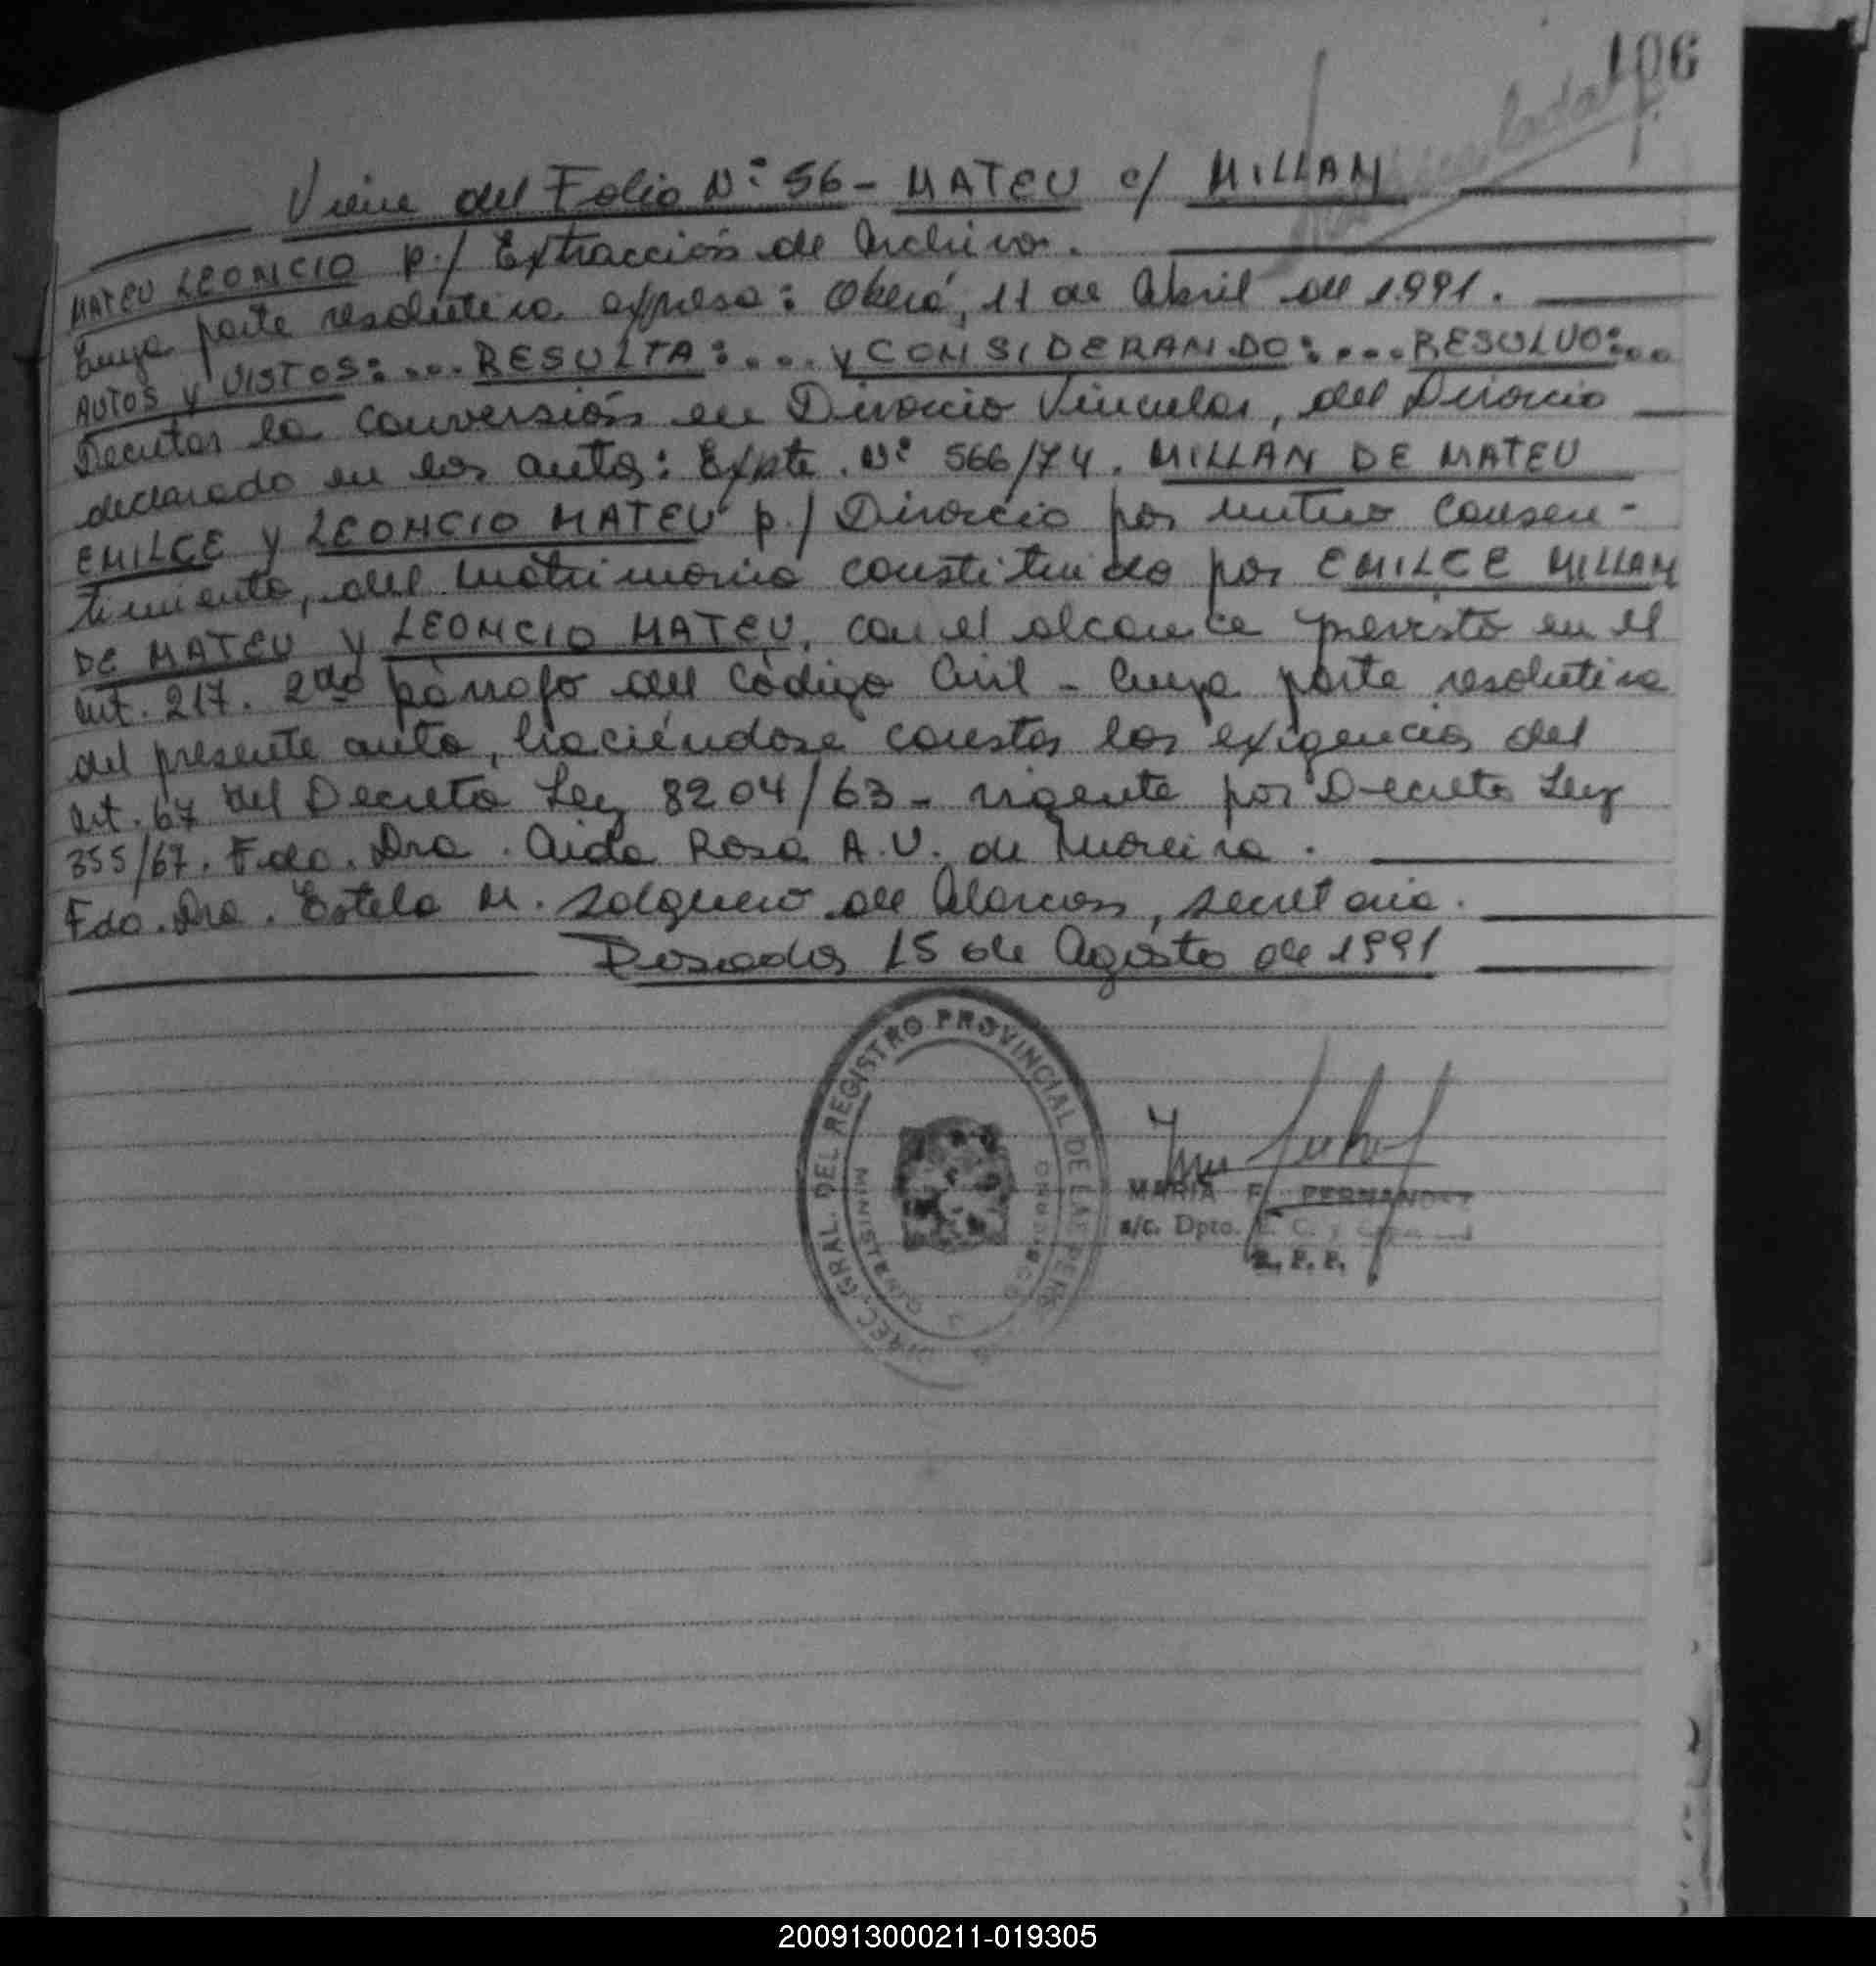 106
Viene del Folio Nº 56 - MATEU c/ MILLAN
MATEU LEONCIO p./ Extracción de Archivo.
Cuya parte resolutiva expresa: Oberá, 11 de Abril del 1.991.
AUTOS y VISTOS:... RESULTA:... y CONSIDERANDO:... RESOLVO:...
Decretar la conversión en Divorcio Vincular, del Divorcio
declarado en los autos: Expte. Nº 566/74. MILLAN DE MATEU
EMILCE y LEONCIO MATEU p./ Divorcio por mutuo consen-
timiento, del matrimonio constituido por EMILCE MILLAN
DE MATEU y LEONCIO MATEU, con el alcance previsto en el
Art. 217. 2do párrafo del Código Civil - Cuya parte resolutiva
del presente auto, haciéndose constar las exigencias del
Art. 67 del Decreto Ley 8204/63 - vigente por Decreto Ley
355/67. Fdo. Dra. Aida Rosa A.V. de Moreira.
Fdo. Dra. Estela M. Salguero de Alarcon, secretaria.
Posadas 15 de Agosto de 1991
DIREC. GRAL. DEL REGISTRO PROVINCIAL DE LAS PERS
MINISTERIO
GOBIERNO
MARIA F. FERNANDEZ
a/c. Dpto.
R. P. P.
200913000211-019305